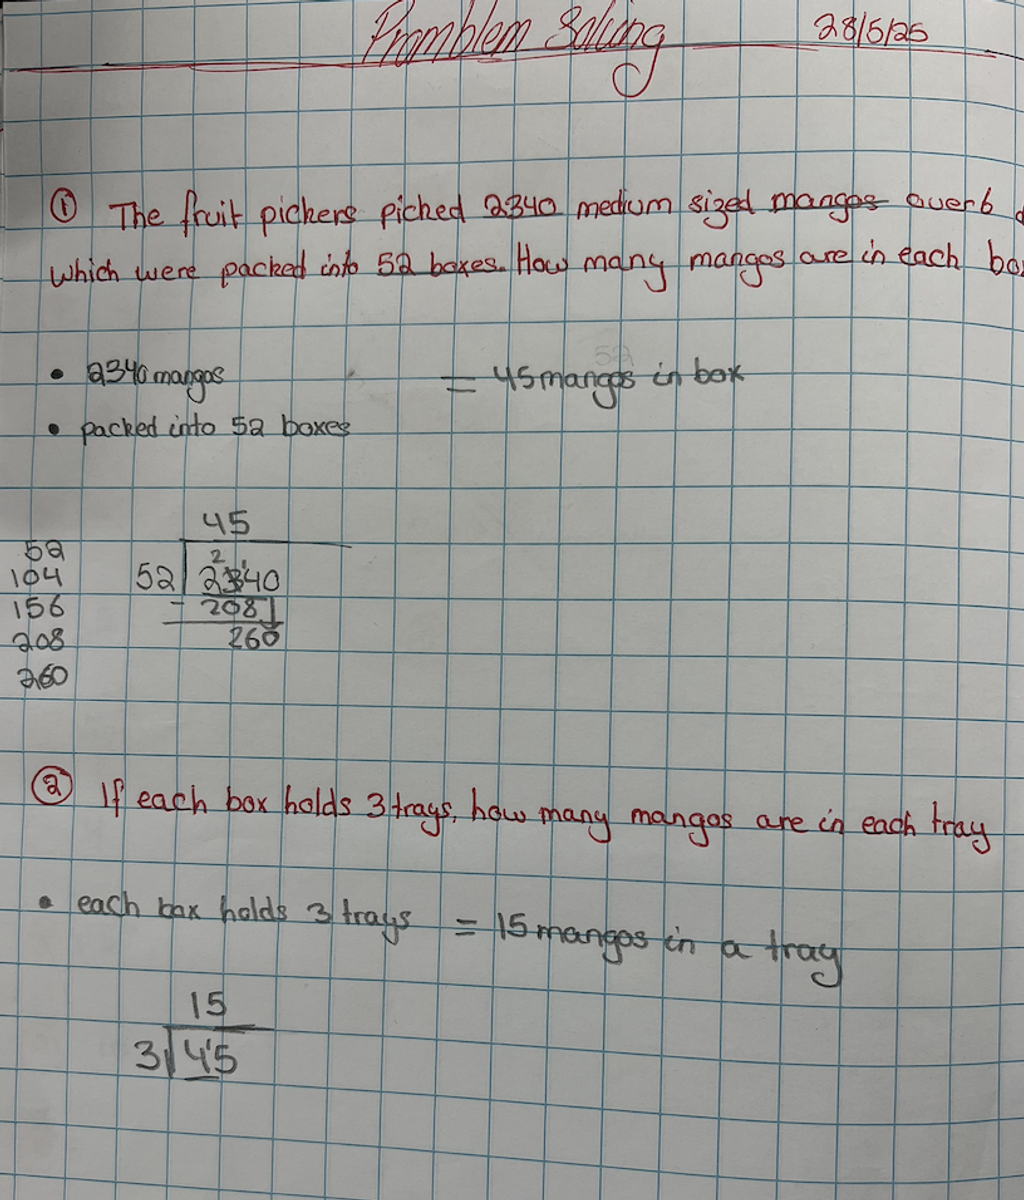 Promblem Solving 28/5/25
① The fruit pickers picked 2340 medium sized mangos over 6
which were packed into 52 boxes. How many mangos are in each
• 2340 mangos = 45 mangos in box
• packed into 52 boxes
45
52 2340
- 208
260
52
104
156
208
260
② If each box holds 3 trays, how many mangos are in each tray
• each box holds 3 trays = 15 mangos in a tray
15
3 45